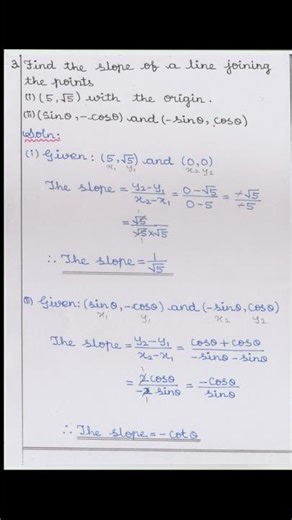 2) Find the slope of a line joining
the points
(i) (5, √5) with the origin.
(ii) (sinθ, -cosθ) and (-sinθ, cosθ)
Soln:
(i) Given: (5, √5) and (0,0)
x₁ y₁ x₂ y₂
The slope = y₂-y₁/x₂-x₁ = 0-√5/0-5 = -√5/-5
= √5/√5×√5
∴ The slope = 1/√5
(ii) Given: (sinθ, -cosθ) and (-sinθ, cosθ)
x₁ y₁ x₂ y₂
The slope = y₂-y₁/x₂-x₁ = cosθ+cosθ/-sinθ-sinθ
= 2cosθ/-2sinθ = -cosθ/sinθ
∴ The slope = -cotθ